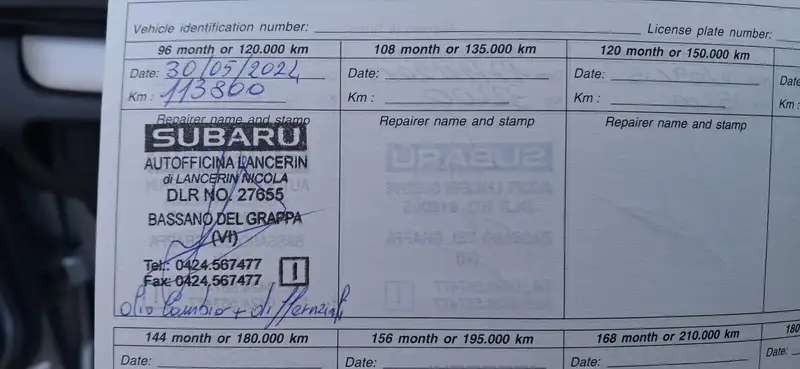 Vehicle identification number:
License plate number:
96 month or 120.000 km
Date: 30/05/2024
Km : 113800
Repairer name and stamp
SUBARU
AUTOFFICINA LANCERIN
di LANCERIN NICOLA
DLR NO. 27655
BASSANO DEL GRAPPA
(VI)
Tel.: 0424.567477
Fax: 0424.567477
I
olio cambio + differenziali
108 month or 135.000 km
Date:
Km :
Repairer name and stamp
120 month or 150.000 km
Date:
Km :
Repairer name and stamp
144 month or 180.000 km
Date:
156 month or 195.000 km
Date:
168 month or 210.000 km
Date:
180
Date: